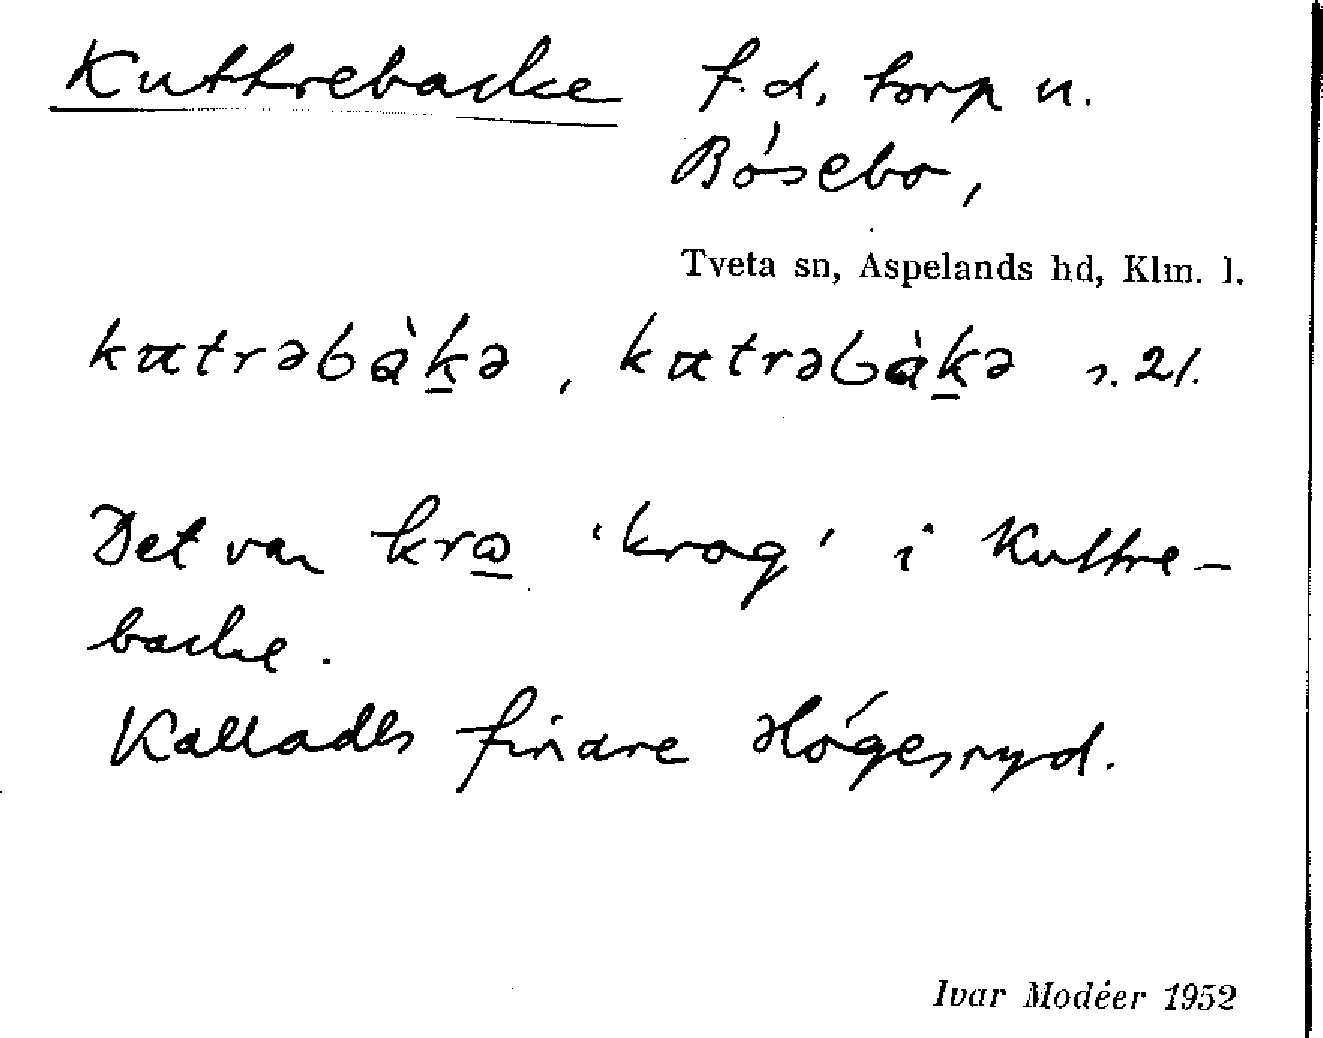 Kuttrebacke f.d. torp u.
Bósebo,
Tveta sn, Aspelands hd, Klm. l.
kutrəbàk̲ə, kutrəbàk̲ə s. 21.
Det var krω̲ 'krog' i Kuttre-
backe.
Kallades finare Högesryd.
Ivar Modéer 1952